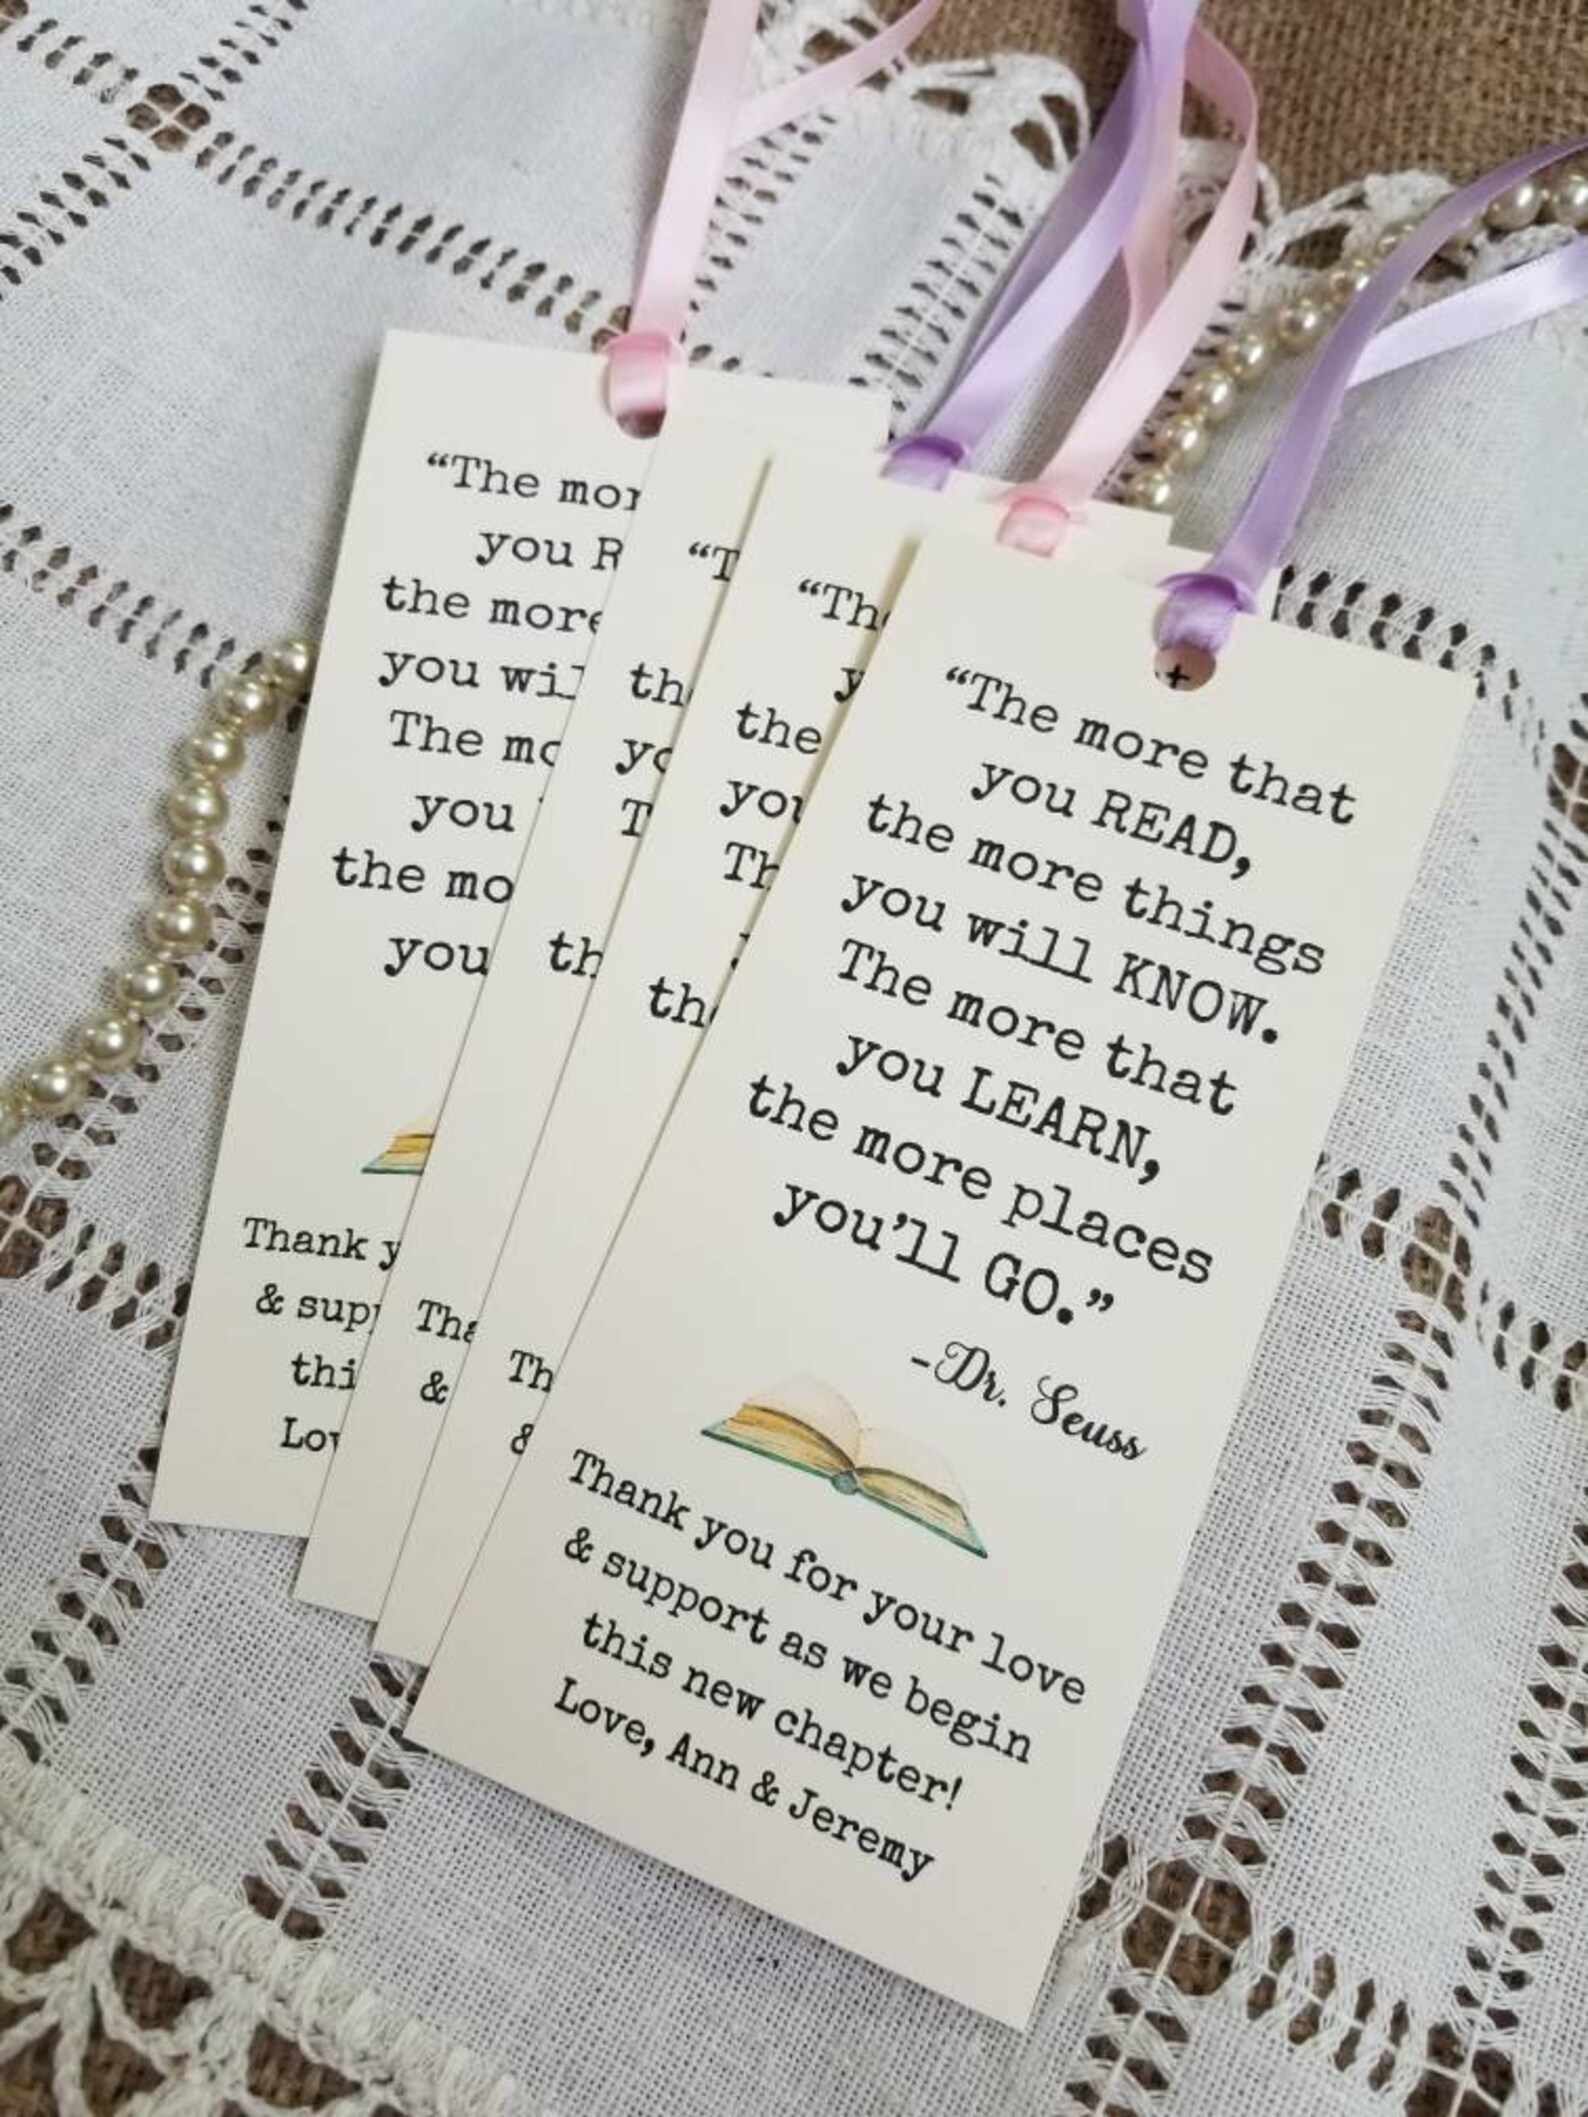 “The mor
you R
the more
you wil
The mo
you
the mo
you
Thank y
& supp
thi
Lov
“T
the
yo
T
th
Tha
&
“The
y
the
you
Th
the
Th
&
“The more that
you READ,
the more things
you will KNOW.
The more that
you LEARN,
the more places
you’ll GO.”
-Dr. Seuss
Thank you for your love
& support as we begin
this new chapter!
Love, Ann & Jeremy